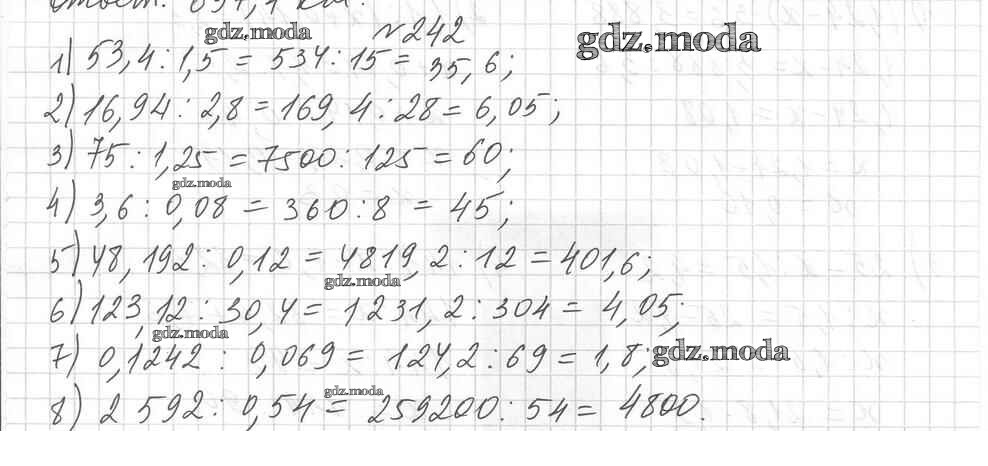 Ответ: 897,1 км.
№242
gdz.moda
gdz.moda
1) 53,4 : 1,5 = 534 : 15 = 35,6;
2) 16,94 : 2,8 = 169,4 : 28 = 6,05;
3) 75 : 1,25 = 7500 : 125 = 60;
gdz.moda
4) 3,6 : 0,08 = 360 : 8 = 45;
5) 48,192 : 0,12 = 4819,2 : 12 = 401,6;
gdz.moda
6) 123,12 : 30,4 = 1231,2 : 304 = 4,05;
gdz.moda
7) 0,1242 : 0,069 = 124,2 : 69 = 1,8;
gdz.moda
gdz.moda
8) 2 592 : 0,54 = 259200 : 54 = 4800.